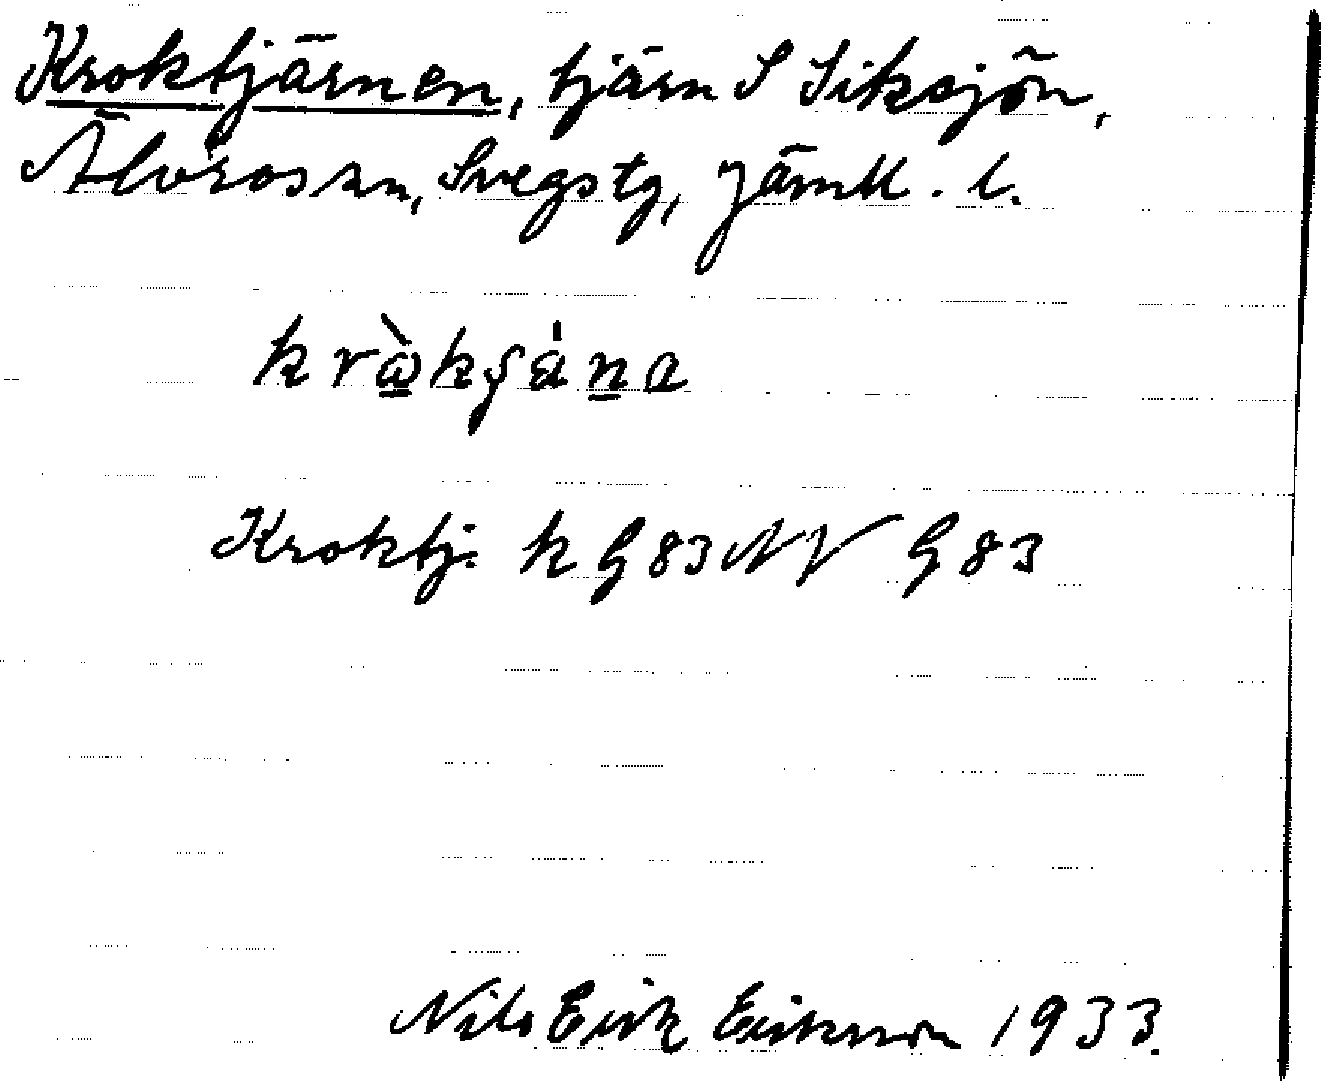 Kroktjärnen, tjärn S Siksjön,
Älvros sn, Svegs tg, Jämtl. l.
Kroktj. k G 83 NV G 83
Nils Erik Eriksson 1933.